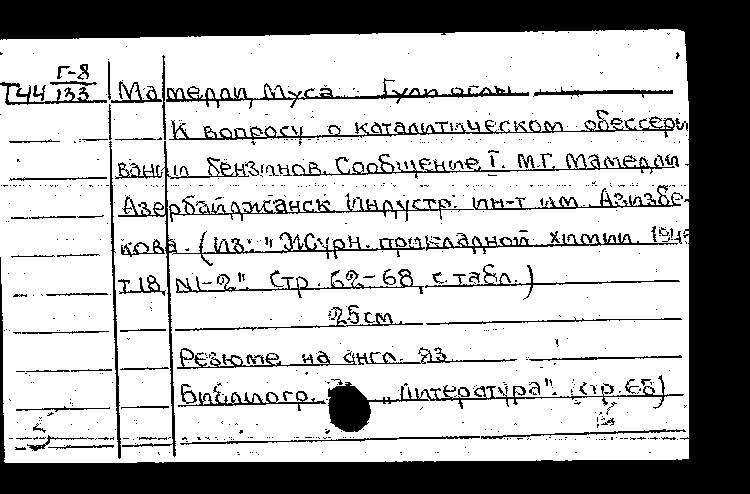 Г-8
Т44 133 Мамедли, Муса Гули оглы
К вопросу о каталитическом обессери
вании бензинов. Сообщение I. М.Г. Мамедли.
Азербайджанск. Индустр. ин-т им. Азизбе-
кова. (Из: "Журн. прикладной химии. 1945
т.18, N1-2". Стр. 62-68, с табл.)
25см.
Резюме на англ. яз
Библиогр. "Литература". (стр. 68)